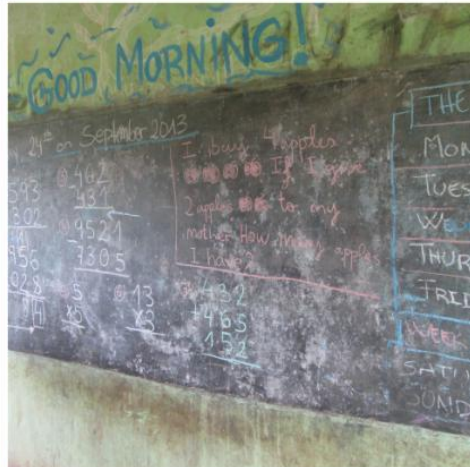 GOOD MORNING!
24th on September 2013
593
302
956
028
- 462
431
- 9521
7305
5
x5
13
x3
432
+ 465
152
I buy 4 apples
If I give
2 apples to my
mother How many apples
I have?
THE
MON
TUES
WE
THUR
FRI
WEEK
SAT
SUND